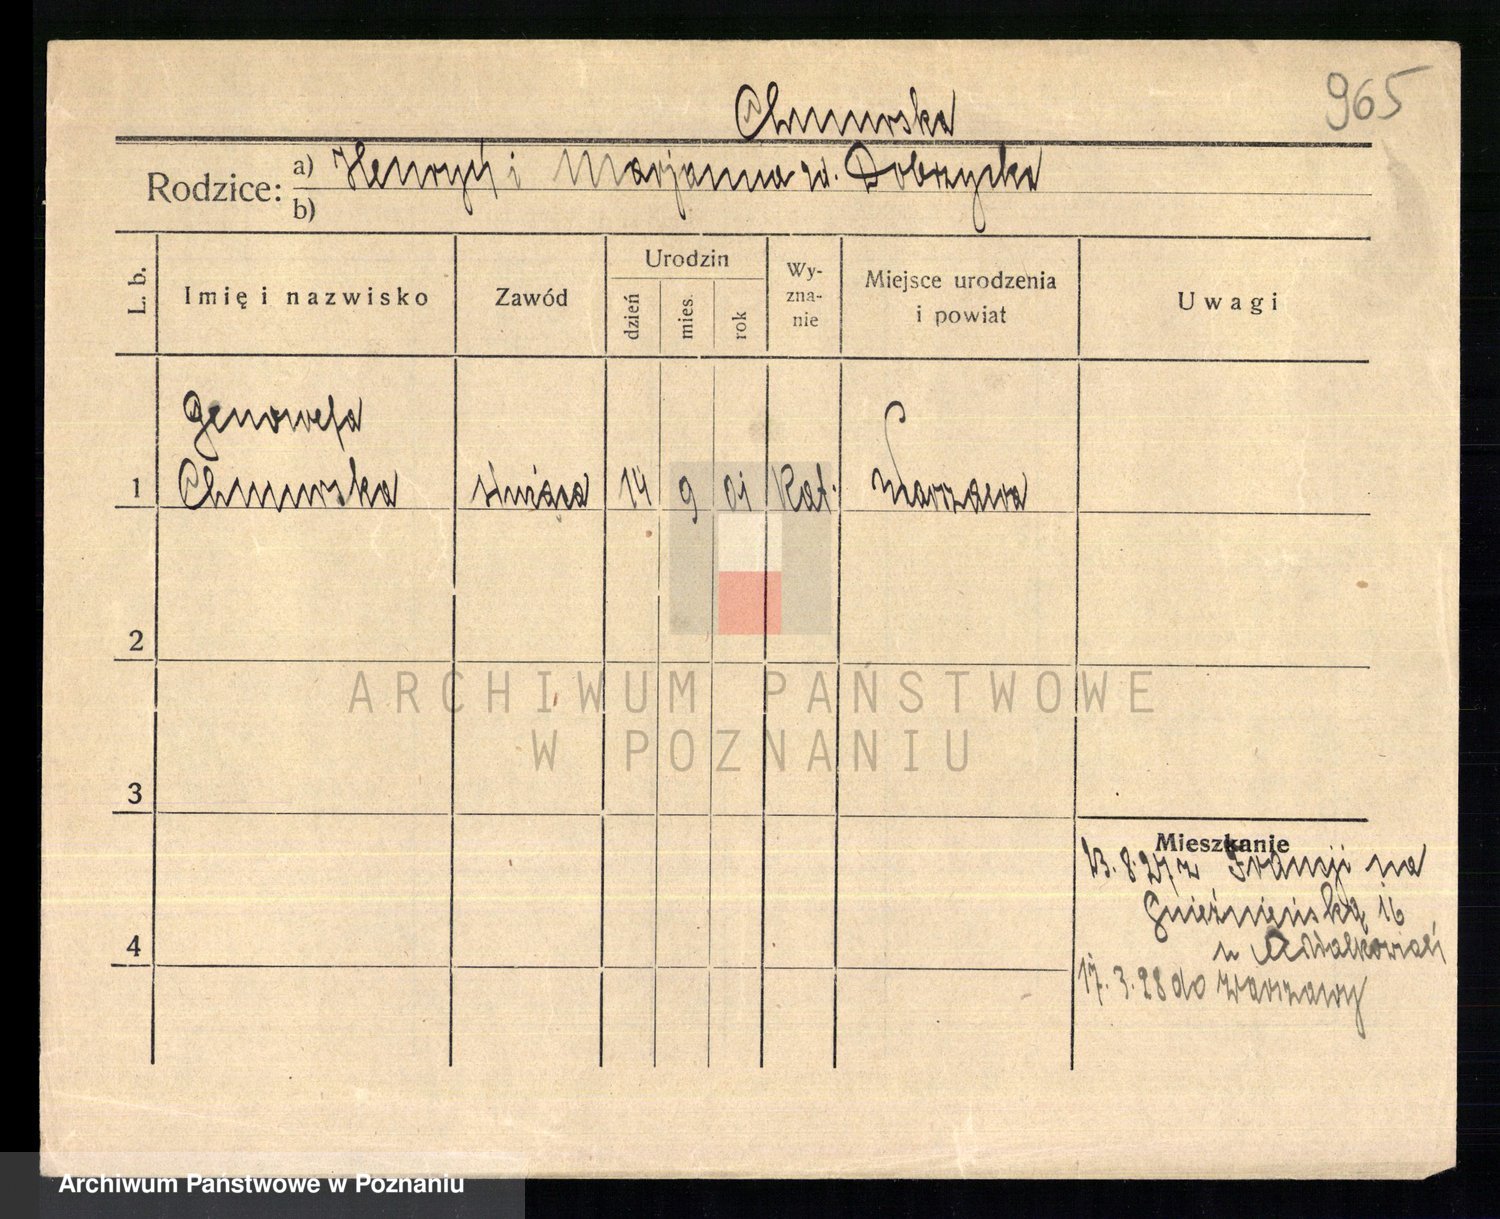 965
Chmurska
Rodzice: a) Henryk i Marjanna zd. Dobrzycka
b)
L. b.
Imię i nazwisko
Zawód
Urodzin
dzień
mies.
rok
Wy-
zna-
nie
Miejsce urodzenia
i powiat
Uwagi
Genowefa
1 Chmurska służąca 14 9 01 Kat. Warszawa
2
ARCHIWUM PAŃSTWOWE
W POZNANIU
3
Mieszkanie
13.8.27 z Francji na
Gnieźnieńską 16
u
4
17.3.28 do Warszawy
Archiwum Państwowe w Poznaniu